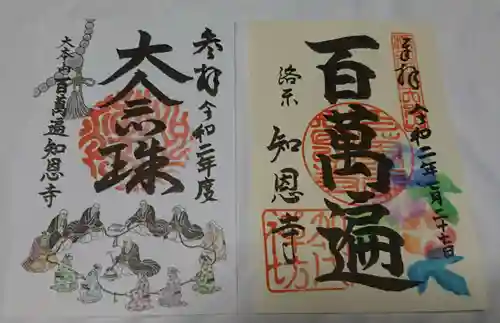 参拝 令和二年度
大念珠
大本山 百萬遍 知恩寺
奉拝 令和二年二月二十七日
百萬遍
洛東 知恩寺